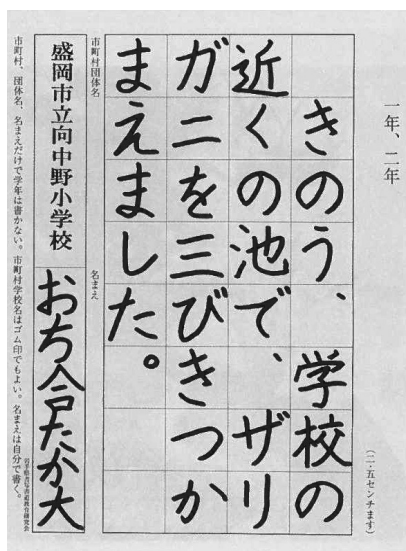 一年、二年
(二・五センチます)
きのう、学校の
近くの池で、ザリ
ガニを三びきつか
まえました。
市町村団体名
盛岡市立向中野小学校
名まえ
おち合たか大
市町村、団体名、名まえだけで学年は書かない。市町村学校名はゴム印でもよい。名まえは自分で書く。
岩手県書写書道教育研究会